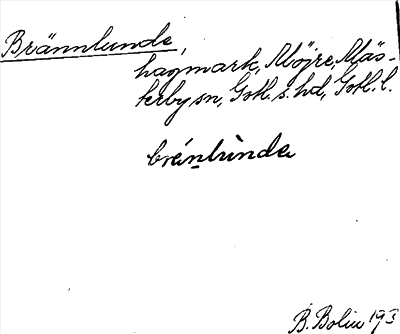 Brännlunde,
hagmark, Möjre, Mäs-
terby sn, Gotl. s. hd, Gotl. l.
brénlùnda
B. Bolin 193